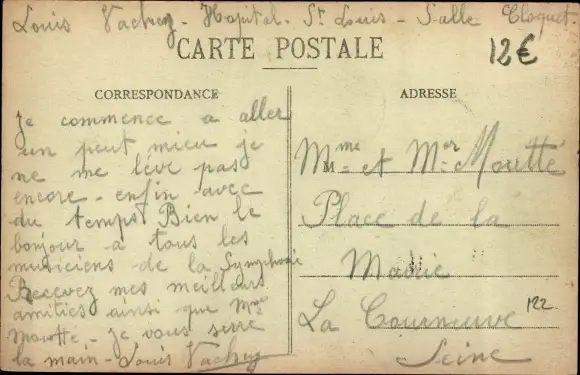 Louis Vachey - Hopital - St Louis - Salle Cloquet -
CARTE POSTALE
12€
CORRESPONDANCE
Je commence a aller
un peut mieu je
ne me lève pas
encore - enfin avec
du temps Bien le
bonjour a tous les
musiciens de la Symphonie
Recevez mes meilleurs
amitiés ainsi que Mme
Moutté - je vous serre
la main - Louis Vachey
ADRESSE
Mme et Mer Moutté
Place de la
Mairie
La Courneuve
122
Seine